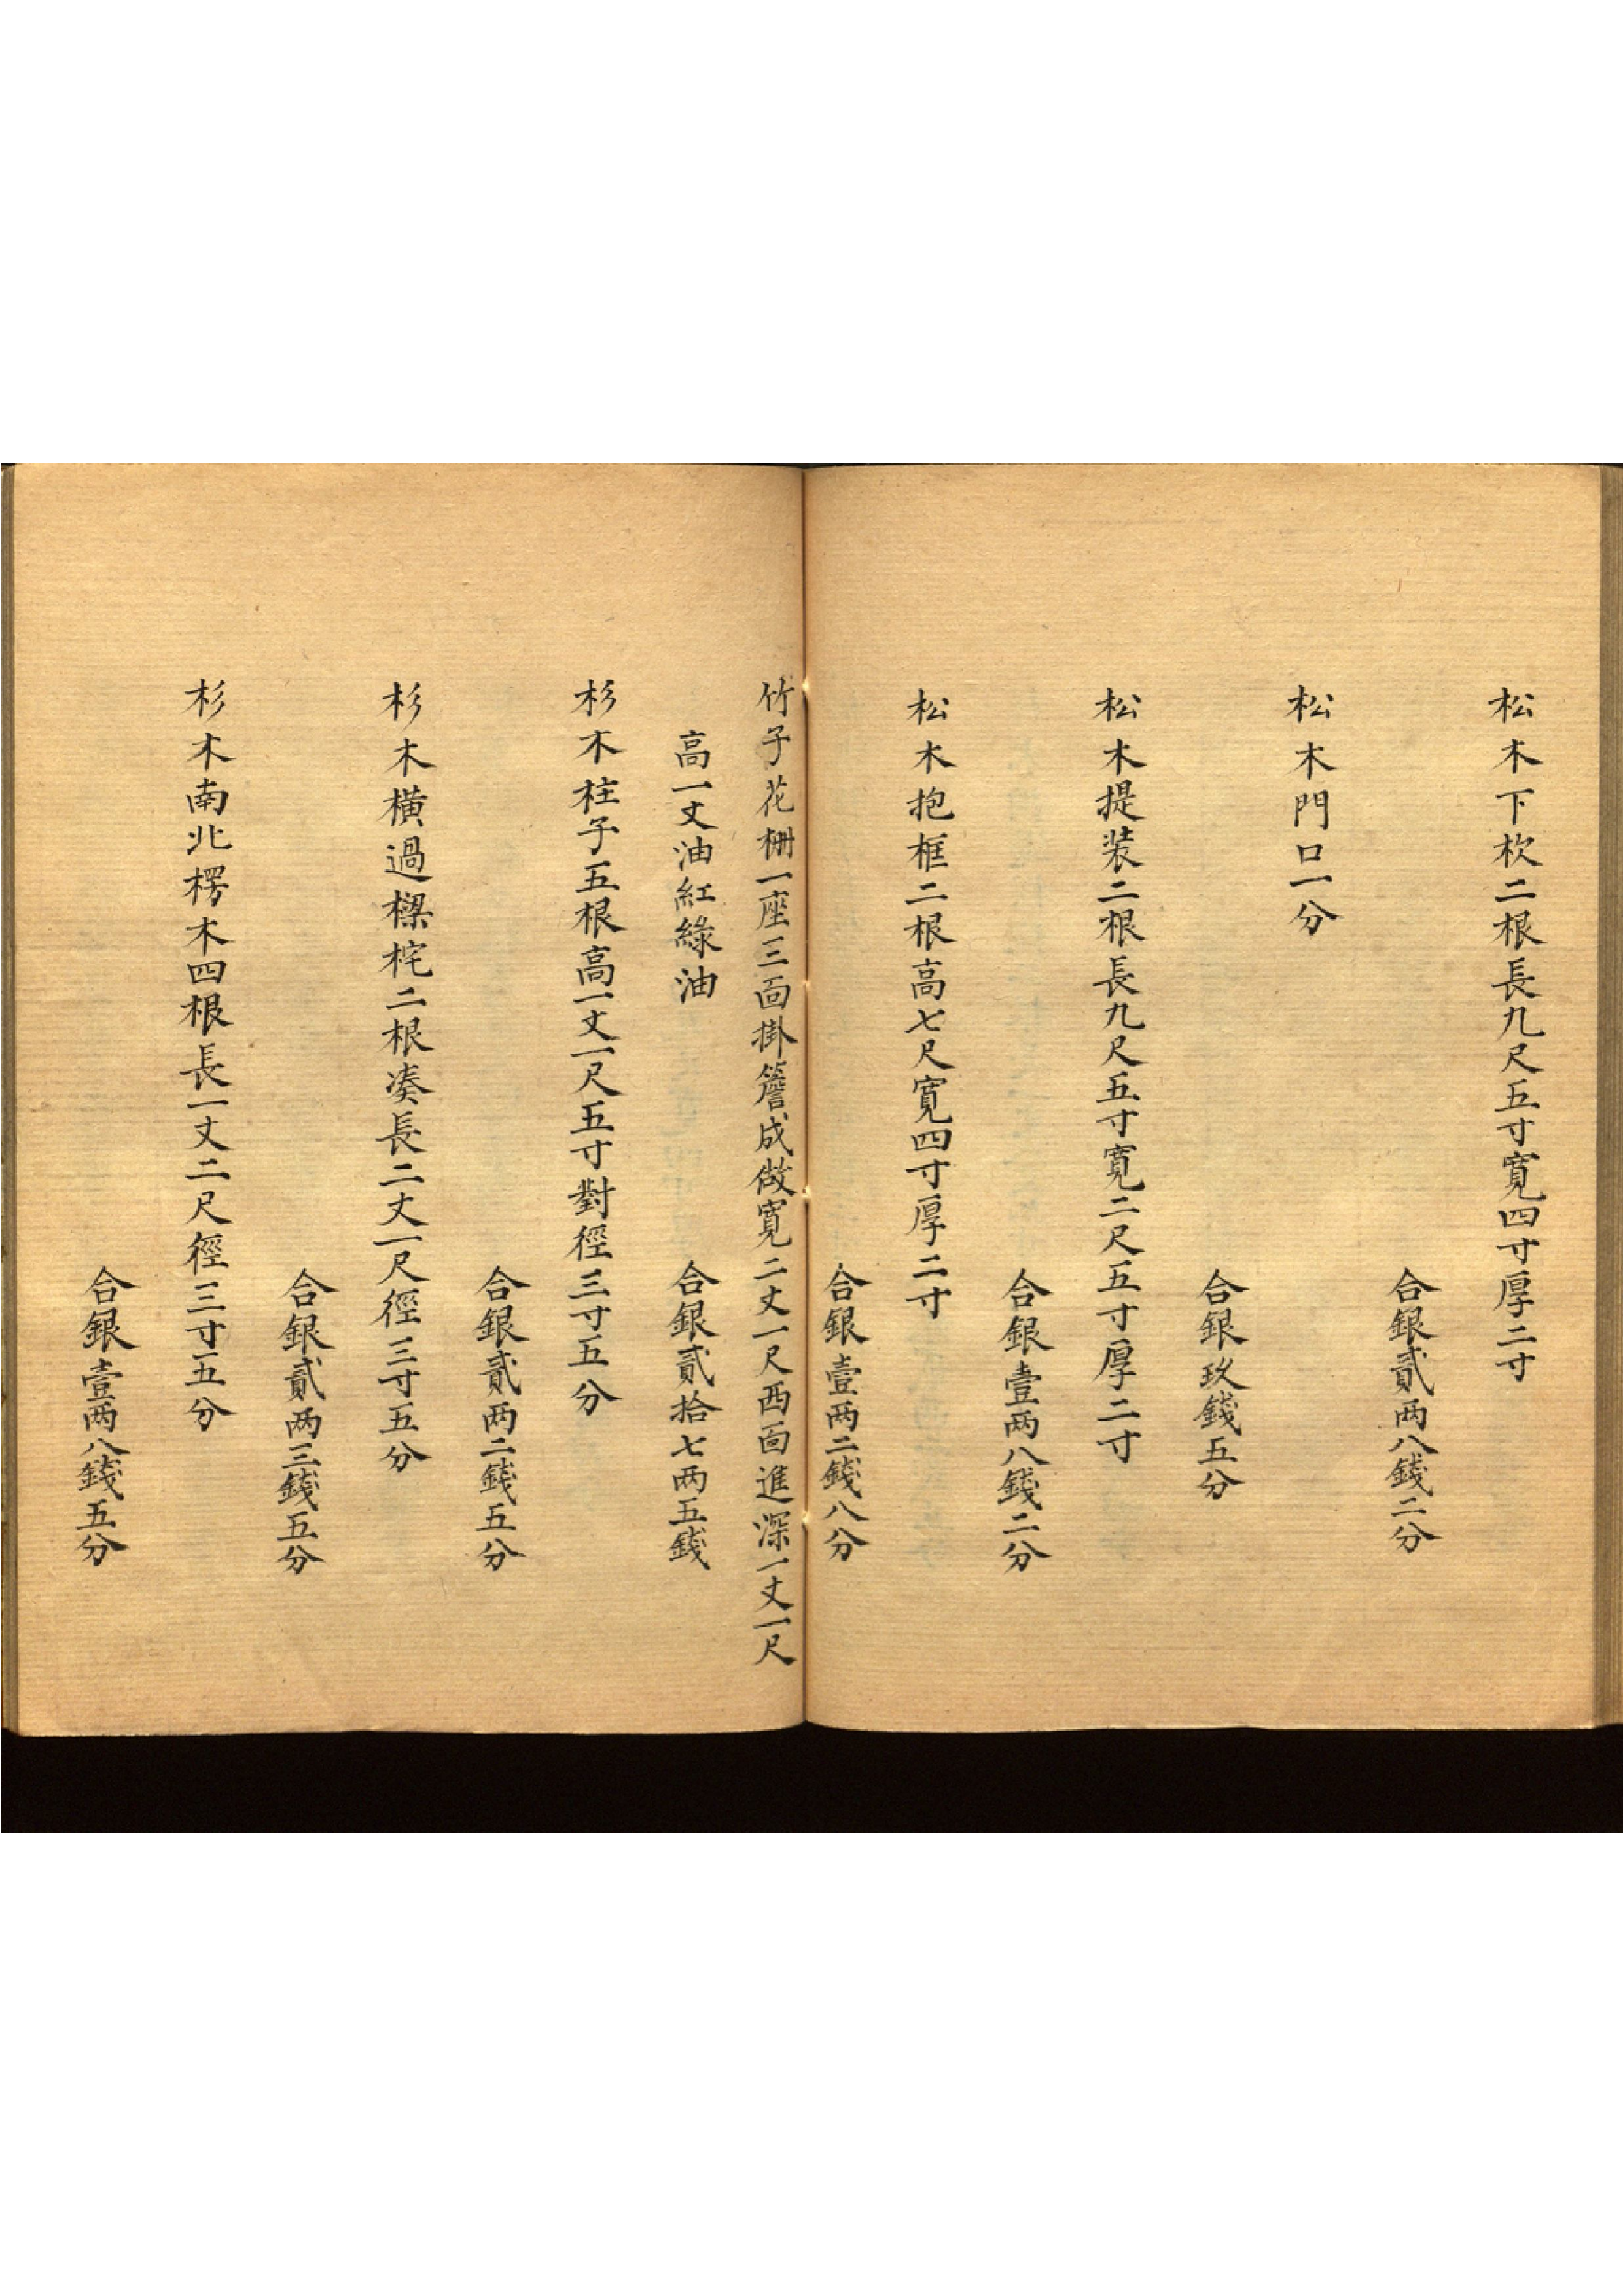 松木下杴二根長九尺五寸寬四寸厚二寸
合銀貳两八錢二分
松木門口一分
合銀玖錢五分
松木提装二根長九尺五寸寬二尺五寸厚二寸
合銀壹两八錢二分
松木抱框二根高七尺寬四寸厚二寸
合銀壹两二錢八分
竹子花栅一座三面掛簷成做寬二丈一尺西面進深一丈一尺
高一丈油紅綠油
合銀貳拾七两五錢
杉木柱子五根高一丈一尺五寸對徑三寸五分
合銀貳两二錢五分
杉木橫過樑柁二根湊長二丈一尺徑三寸五分
合銀貳两三錢五分
杉木南北楞木四根長一丈二尺徑三寸五分
合銀壹两八錢五分